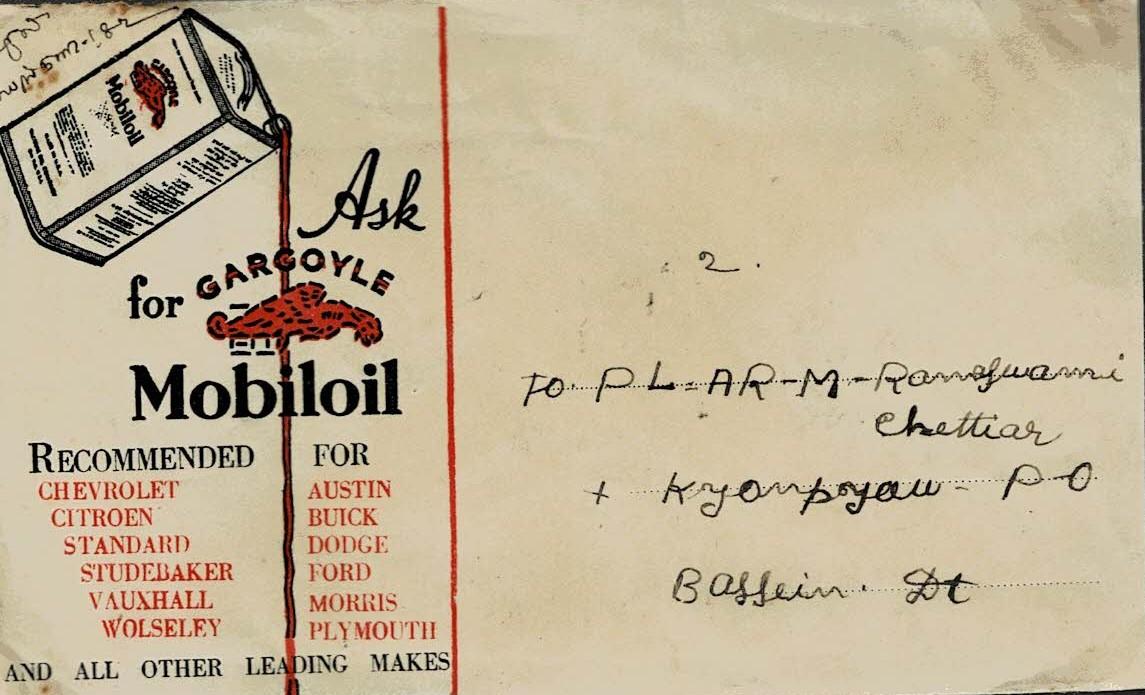 GARGOYLE
Mobiloil
Ask
for GARGOYLE
Mobiloil
RECOMMENDED FOR
CHEVROLET AUSTIN
CITROEN BUICK
STANDARD DODGE
STUDEBAKER FORD
VAUXHALL MORRIS
WOLSELEY PLYMOUTH
AND ALL OTHER LEADING MAKES
2.
To P L - AR - M - Ramaswami
Chettiar
+ Kyonpyaw - P O
Bassein. Dt